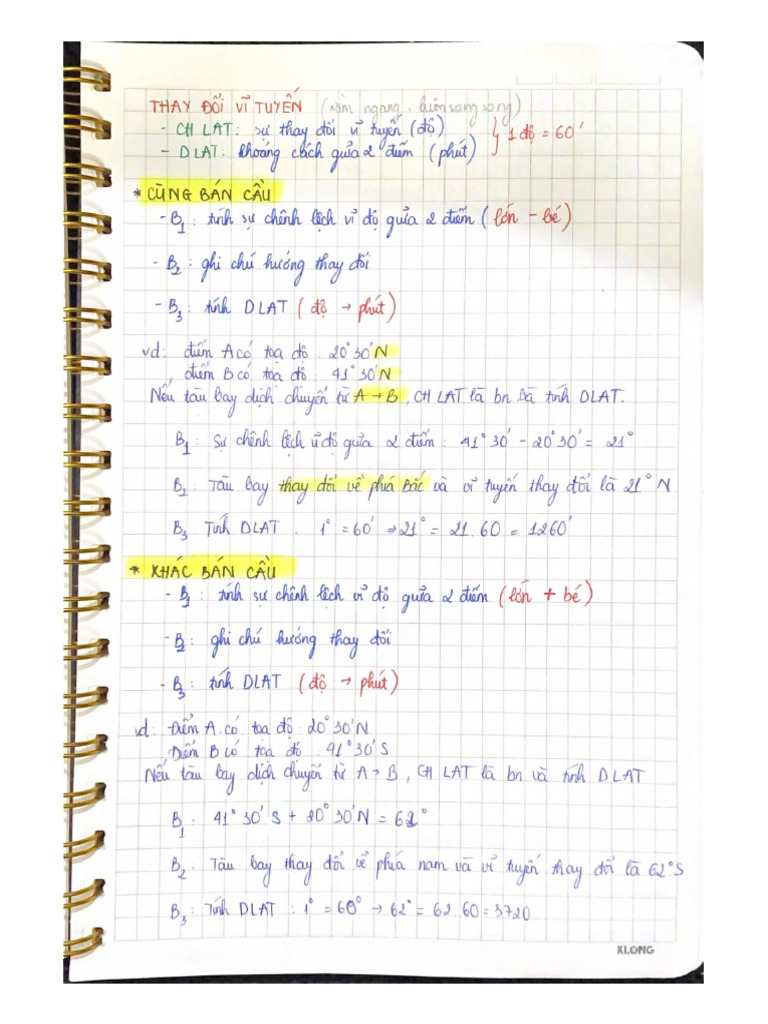 THAY ĐỔI VĨ TUYẾN (nằm ngang, luôn song song)
- CH LAT: sự thay đổi vĩ tuyến (độ)
- DLAT: khoảng cách giữa 2 điểm (phút)
} 1 độ = 60'
* CÙNG BÁN CẦU
- B1: tính sự chênh lệch vĩ độ giữa 2 điểm (lớn - bé)
- B2: ghi chú hướng thay đổi
- B3: tính DLAT (độ → phút)
vd: điểm A có toạ độ: 20°30'N
điểm B có toạ độ: 41°30'N
Nếu tàu bay dịch chuyển từ A → B, CH LAT là bn và tính DLAT.
B1: Sự chênh lệch vĩ độ giữa 2 điểm: 41°30' - 20°30' = 21°
B2: Tàu bay thay đổi về phía Bắc và vĩ tuyến thay đổi là 21°N
B3: Tính DLAT: 1° = 60' → 21° = 21.60 = 1260'
* KHÁC BÁN CẦU
- B1: tính sự chênh lệch vĩ độ giữa 2 điểm (lớn + bé)
- B2: ghi chú hướng thay đổi
- B3: tính DLAT (độ → phút)
vd: Điểm A có toạ độ: 20°30'N
Điểm B có toạ độ: 41°30'S
Nếu tàu bay dịch chuyển từ A → B, CH LAT là bn và tính DLAT
B1: 41°30'S + 20°30'N = 62°
B2: Tàu bay thay đổi về phía nam và vĩ tuyến thay đổi là 62°S
B3: Tính DLAT: 1° = 60° → 62° = 62.60 = 3720
KLONG